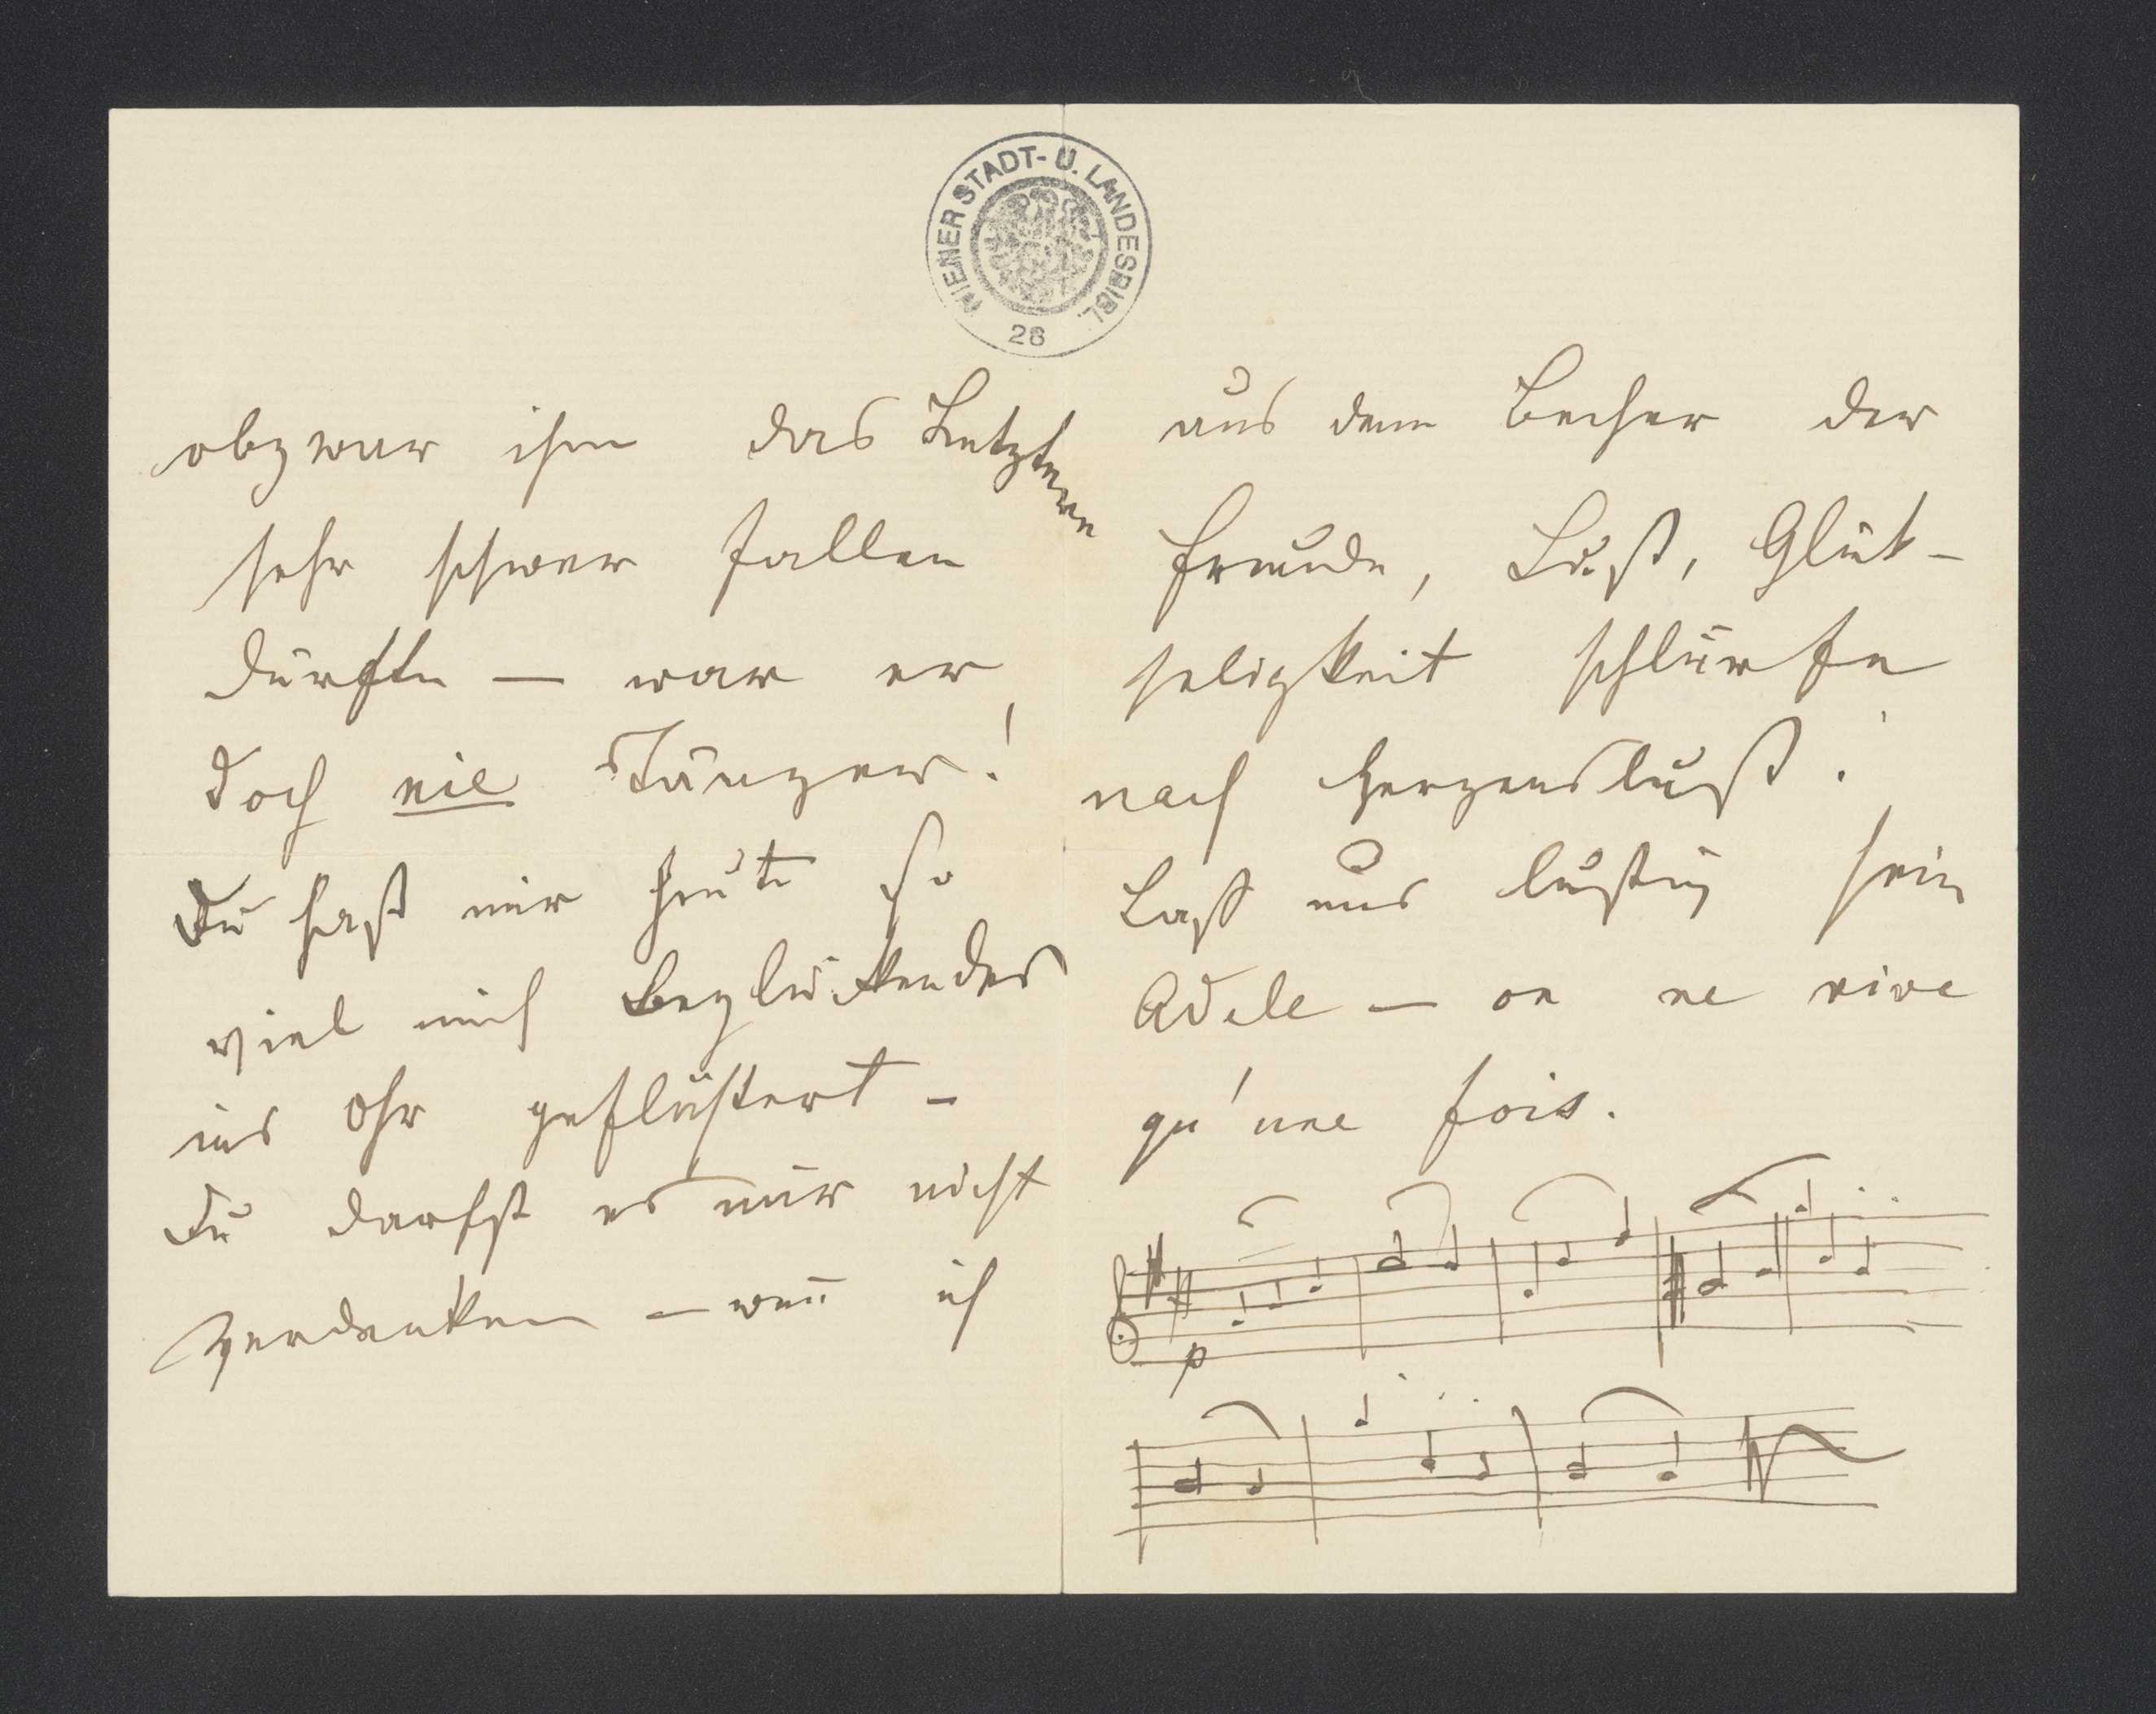 WIENER STADT- U. LANDESBIBL.
28
obzwar ihm das Letztere
sehr schwer fallen
dürfte — war er
doch nie Tänzer!
Du hast mir heute so
viel mich beglückendes
ins Ohr geflüstert –
Du darfst es mir nicht
verdenken – weñ ich
aus dem Becher der
Freude, Lust, Glük-
seligkeit schlürfe
nach Herzenslust!
Lass uns lustig sein
Adele – on ne vive
qu'une fois.
p